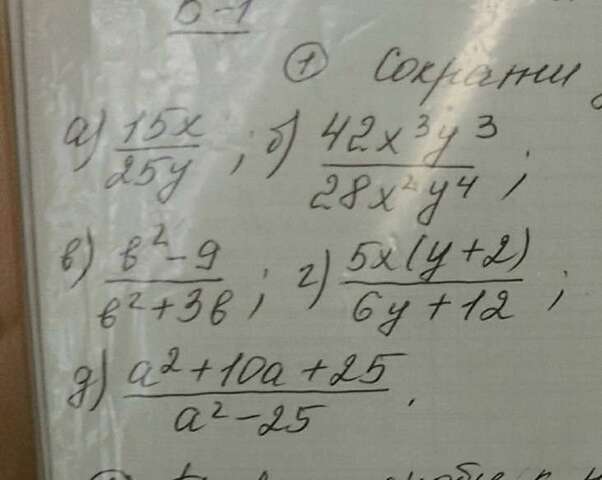 В-1
① Сократи
а) 15x/25y ; б) 42x³y³/28x²y⁴ ;
в) (в²-9)/(в²+3в) ; г) 5x(y+2)/(6y+12) ;
д) (a²+10a+25)/(a²-25) .